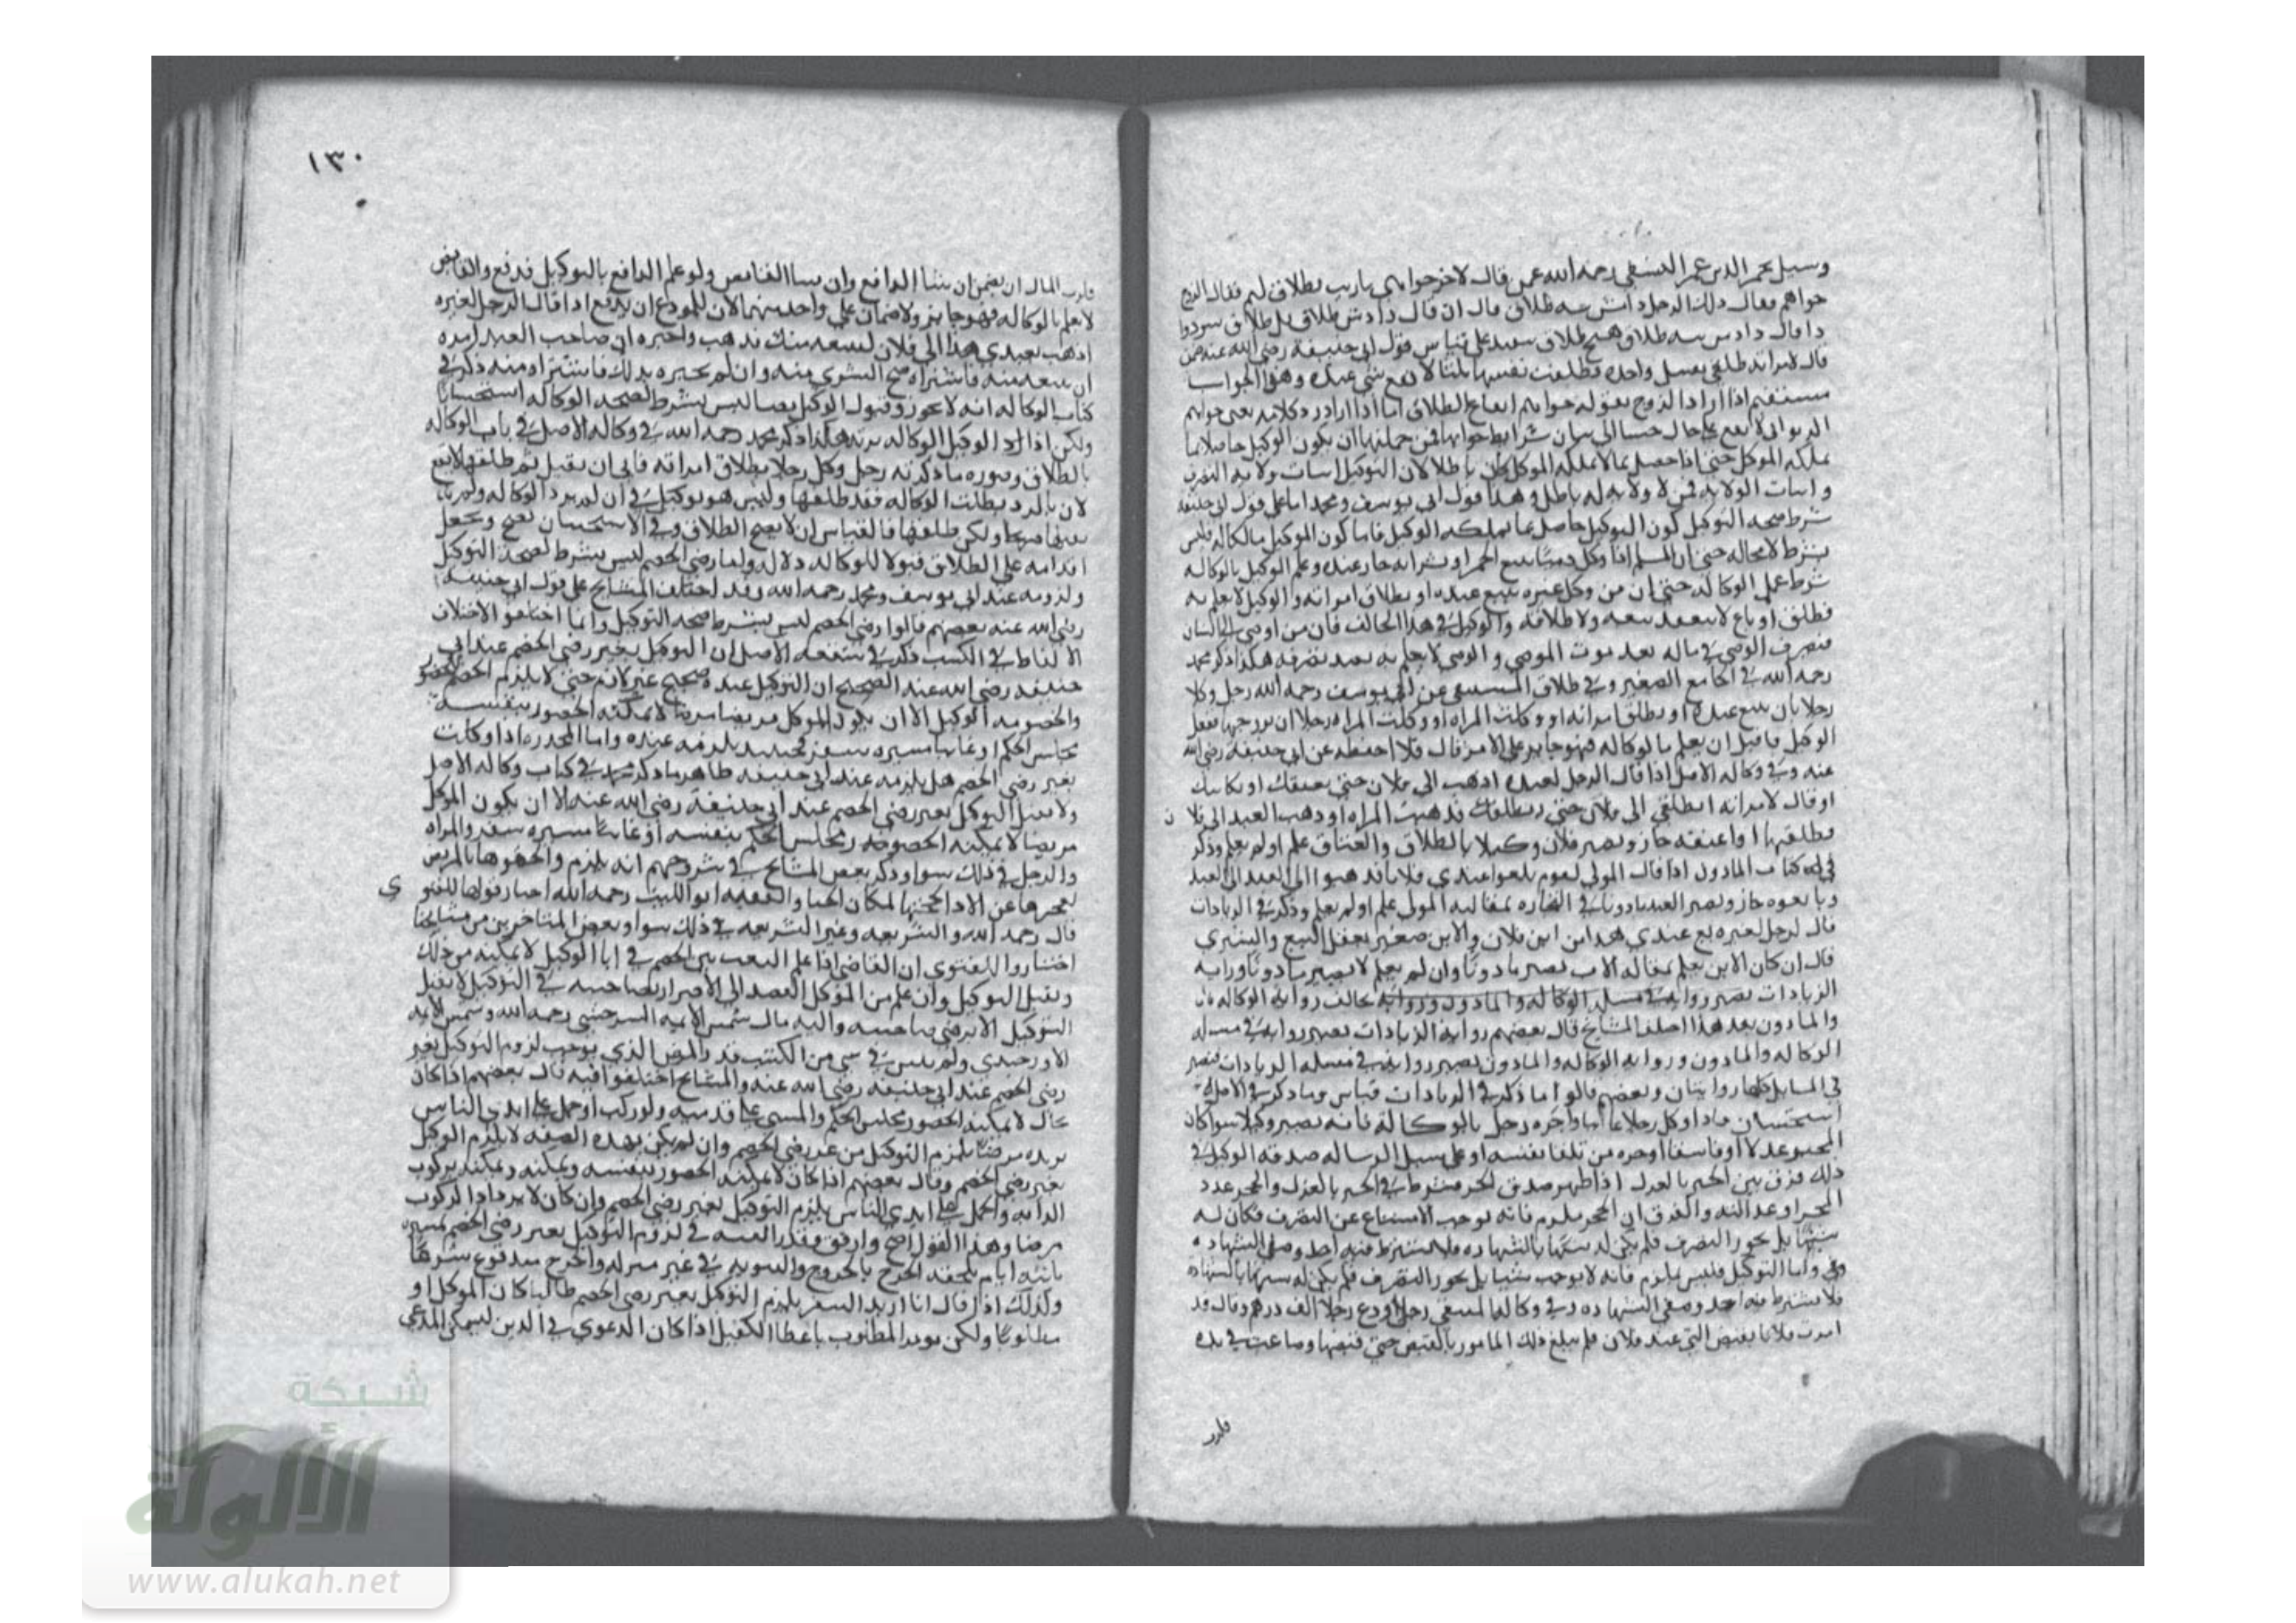 وسيل نجم الدين عمر النسفي رحمه الله عمن قال لاخر خواهي بطلاق فقال الزوج
خواهم فقال ذلك الرجل دادمش سه طلاق قال ان قال دادمش طلاق
قال لامراته طلقي نفسك واحدة فطلقت نفسها ثلثا لا يقع شي عنده وهذا الجواب
مستقيم اذا اراد الزوج بقوله خواهم ايقاع الطلاق اما اذا اراد
لا يقع بكل حال جينا الى بيان شرايط جوازها فمن جملتها ان يكون الوكيل حاصلا بما
يملكه الموكل حتى اذا حصل بما لا يملكه الموكل كان باطلا لان التوكيل اثبات ولاية التصرف
واثبات الولاية ممن لا ولاية له باطل وهذا قول ابي يوسف ومحمد اما على قول ابي حنيفة
شرط صحة التوكيل كون التوكيل حاصل بما يملكه الوكيل فاما كون الموكل مالكا له فليس
بشرط لا محالة حتى ان المسلم اذا وكل ذميا ببيع الخمر او بشرايه جاز عنده وعلم الوكيل بالوكالة
شرط عمل الوكالة حتى ان من وكل غيره ببيع عبده او بطلاق امراته والوكيل لا يعلم به
فطلق او باع لا ينفذ بيعه ولا طلاقه والوكيل في هذا يخالف فان من اوصى الى انسان
فتصرف الوصي في ماله بعد موت الموصي والوصي لا يعلم به نفذ تصرفه هكذا ذكر محمد
رحمه الله في الجامع الصغير وفي طلاق المنتقى عن ابي يوسف رحمه الله رجل وكل
رجلا بان يبيع عبده او يطلق امراته او وكلت المراة رجلا ان يزوجها ففعل
الوكيل ما قبل ان يعلم بالوكالة فهو جايز على الامر قال ولا احفظه عن ابي حنيفة رضي الله
عنه وفي وكالة الاصل اذا قال الرجل لعبده اذهب الى فلان حتى يعتقك او يكاتبك
او قال لامراته انطلقي الى فلان حتى يطلقك فذهبت المراة او ذهب العبد الى فلان
فطلقها او اعتقه جاز ويصير فلان وكيلا بالطلاق والعتاق علم او لم يعلم وذكر
في كتاب الماذون اذا قال المولى لقوم بايعوا عبدي فلانا فذهبوا الى العبد
وبايعوه جاز ويصير العبد ماذونا في التجارة بمقالة المولى علم او لم يعلم وذكر في الزيادات
قال لرجل لغيره بع عبدي هذا من ابن فلان والابن صغير يعقل البيع والشرى
قال ان كان الابن يعلم بمقالة الاب يصير ماذونا وان لم يعلم لا يصير ماذونا ورواية
الزيادات تصير رواية في مسلة الوكالة والماذون ورواية تخالف رواية الوكالة
والماذون بعد هذا اختلف المشايخ قال بعضهم رواية الزيادات تصير رواية في مسلة
الوكالة والماذون ورواية الوكالة والماذون تصير رواية في مسلة الزيادات فتصير
في المسايل كلها روايتان وبعضهم قالوا ما ذكر في الزيادات قياس وما ذكر في الاصل
استحسان واذا وكل رجلا غايبا واخبره رجل بالوكالة فانه يصير وكيلا سوا كان
المخبر عدلا او فاسقا اخبره من تلقا نفسه او على سبيل الرسالة صدقه الوكيل في
ذلك فرق بين الخبر بالعزل اذا ظهر صدق الخبر
الحجر ملزم فانه يوجب الامتناع عن التصرف فكان له
فلم يكن له شبها بالشهادة فلا يشترط فيه احد وصفي الشهادة
واما التوكيل فليس بملزم فانه لا يوجب شيا بل يجوز التصرف فلم يكن له شبها بالشهادة
فلا يشترط فيه احد وصفي الشهادة وفي وكالة المنتقى رجل اودع رجلا الف درهم وقال قد
امرت فلانا بقبض التي عند فلان فلم يبلغ ذلك المامور بالقبض حتى قبضها وضاعت في يده
فلرب
١٣٠
فلرب المال ان يضمن ان شا الدافع وان شا القابض ولو علم الدافع بالتوكيل فدفع والقابض
لا يعلم بالوكالة فهو جايز ولا ضمان على واحد منهما لان للمودع ان يدفع اذا قال الرجل لغيره
اذهب بعبدي هذا الى فلان ليبيعه منك فذهب واخبره ان صاحب العبد امره
ان يبيعه منه فاشتراه صح الشرى منه وان لم يخبره بذلك فاشتراه منه ذكر في
كتاب الوكالة انه لا يجوز وقبول الوكيل نصا ليس بشرط لصحة الوكالة استحسانا
ولكن اذا رد الوكيل الوكالة يرتد هكذا ذكر محمد رحمه الله في وكالة الاصل في باب الوكالة
بالطلاق وصورة ما ذكر ثمه رجل وكل رجلا بطلاق امراته فابى ان يقبل ثم طلقها لا يقع
لان بالرد بطلت الوكالة فقد طلقها وليس هو بوكيل في ان لم يرد الوكالة ولم
صريحا ولكن طلقها فالقياس ان لا يصح الطلاق وفي الاستحسان يصح ويجعل
اقدامه على الطلاق قبولا للوكالة دلالة ولنا رضى الخصم ليس بشرط لصحة التوكيل
ولزومه عند ابي يوسف ومحمد رحمه الله وقد اختلف المشايخ على قول ابي حنيفة
رضي الله عنه بعضهم قالوا رضى الخصم ليس بشرط صحة التوكيل وانما اختلفوا لاختلاف
الالفاظ في الكتب ذكر في شفعة الاصل ان التوكيل بغير رضى الخصم عند ابي
حنيفة رضي الله عنه الصحيح ان التوكيل عنده صحيح غير لازم حتى لا يلزم الخصم الحضور
والخصومة الوكيل الا ان يكون الموكل مريضا مرضا لا يمكنه الحضور بنفسه
مجلس الحكم او غايبا مسيرة سفر فحينيذ يلزمه عنده واما المخدرة اذا وكلت
بغير رضى الخصم هل يلزمه عند ابي حنيفة ظاهر ما ذكر محمد في كتاب وكالة الاصل
ولا يقبل التوكيل بغير رضى الخصم عند ابي حنيفة رضي الله عنه الا ان يكون الموكل
مريضا لا يمكنه الخصومة في مجلس الحكم بنفسه او غايبا مسيرة سفر والمراة
والرجل في ذلك سوا وذكر بعض المشايخ في شروحهم انه يلزم والحقوها بالمريض
لعجزها عن الاداء بحجتها لمكان الحيا والفقيه ابو الليث رحمه الله اختار قولهما للفتوى
قال رحمه الله والشريفة وغير الشريفة في ذلك سوا وبعض المتاخرين من مشايخنا
اختاروا للفتوى ان القاضي اذا علم التعنت من الخصم في اباء الوكيل لا يمكنه من ذلك
ويقبل التوكيل وان علم من الموكل القصد الى الاضرار بصاحبه في التوكيل لا يقبل
التوكيل الا برضى صاحبه واليه مال شمس الايمة السرخسي رحمه الله وشمس الايمة
الاوزجندي ولم يبين في شي من الكتب قدر المرض الذي يوجب لزوم التوكيل بغير
رضى الخصم عند ابي حنيفة رضي الله عنه والمشايخ اختلفوا فيه قال بعضهم اذا كان
بحال لا يمكنه الحضور مجلس الحكم والمشي على قدميه ولو ركب او حمل على ايدي الناس
يزيده مرضا يلزم التوكيل من غير رضى الخصم وان لم يكن بهذه الصفة لا يلزم التوكيل
بغير رضى الخصم وقال بعضهم اذا كان لا يمكنه الحضور بنفسه ويمكنه بركوب
الدابة والحمل على ايدي الناس يلزم التوكيل بغير رضى الخصم وان كان لا يزداد بالركوب
مرضا وهذا القول اصح وارفق وقدر الغيبة في لزوم التوكيل بغير رضى الخصم بمسيرة
ثلثة ايام
وكذلك اذا قال انا اريد السفر يلزم التوكيل بغير رضى الخصم طالبا كان الموكل او
مطلوبا ولكن يومر المطلوب باعطا الكفيل اذا كان الدعوى في الدين ليمكن المدعي
شبكة
الألوكة
www.alukah.net